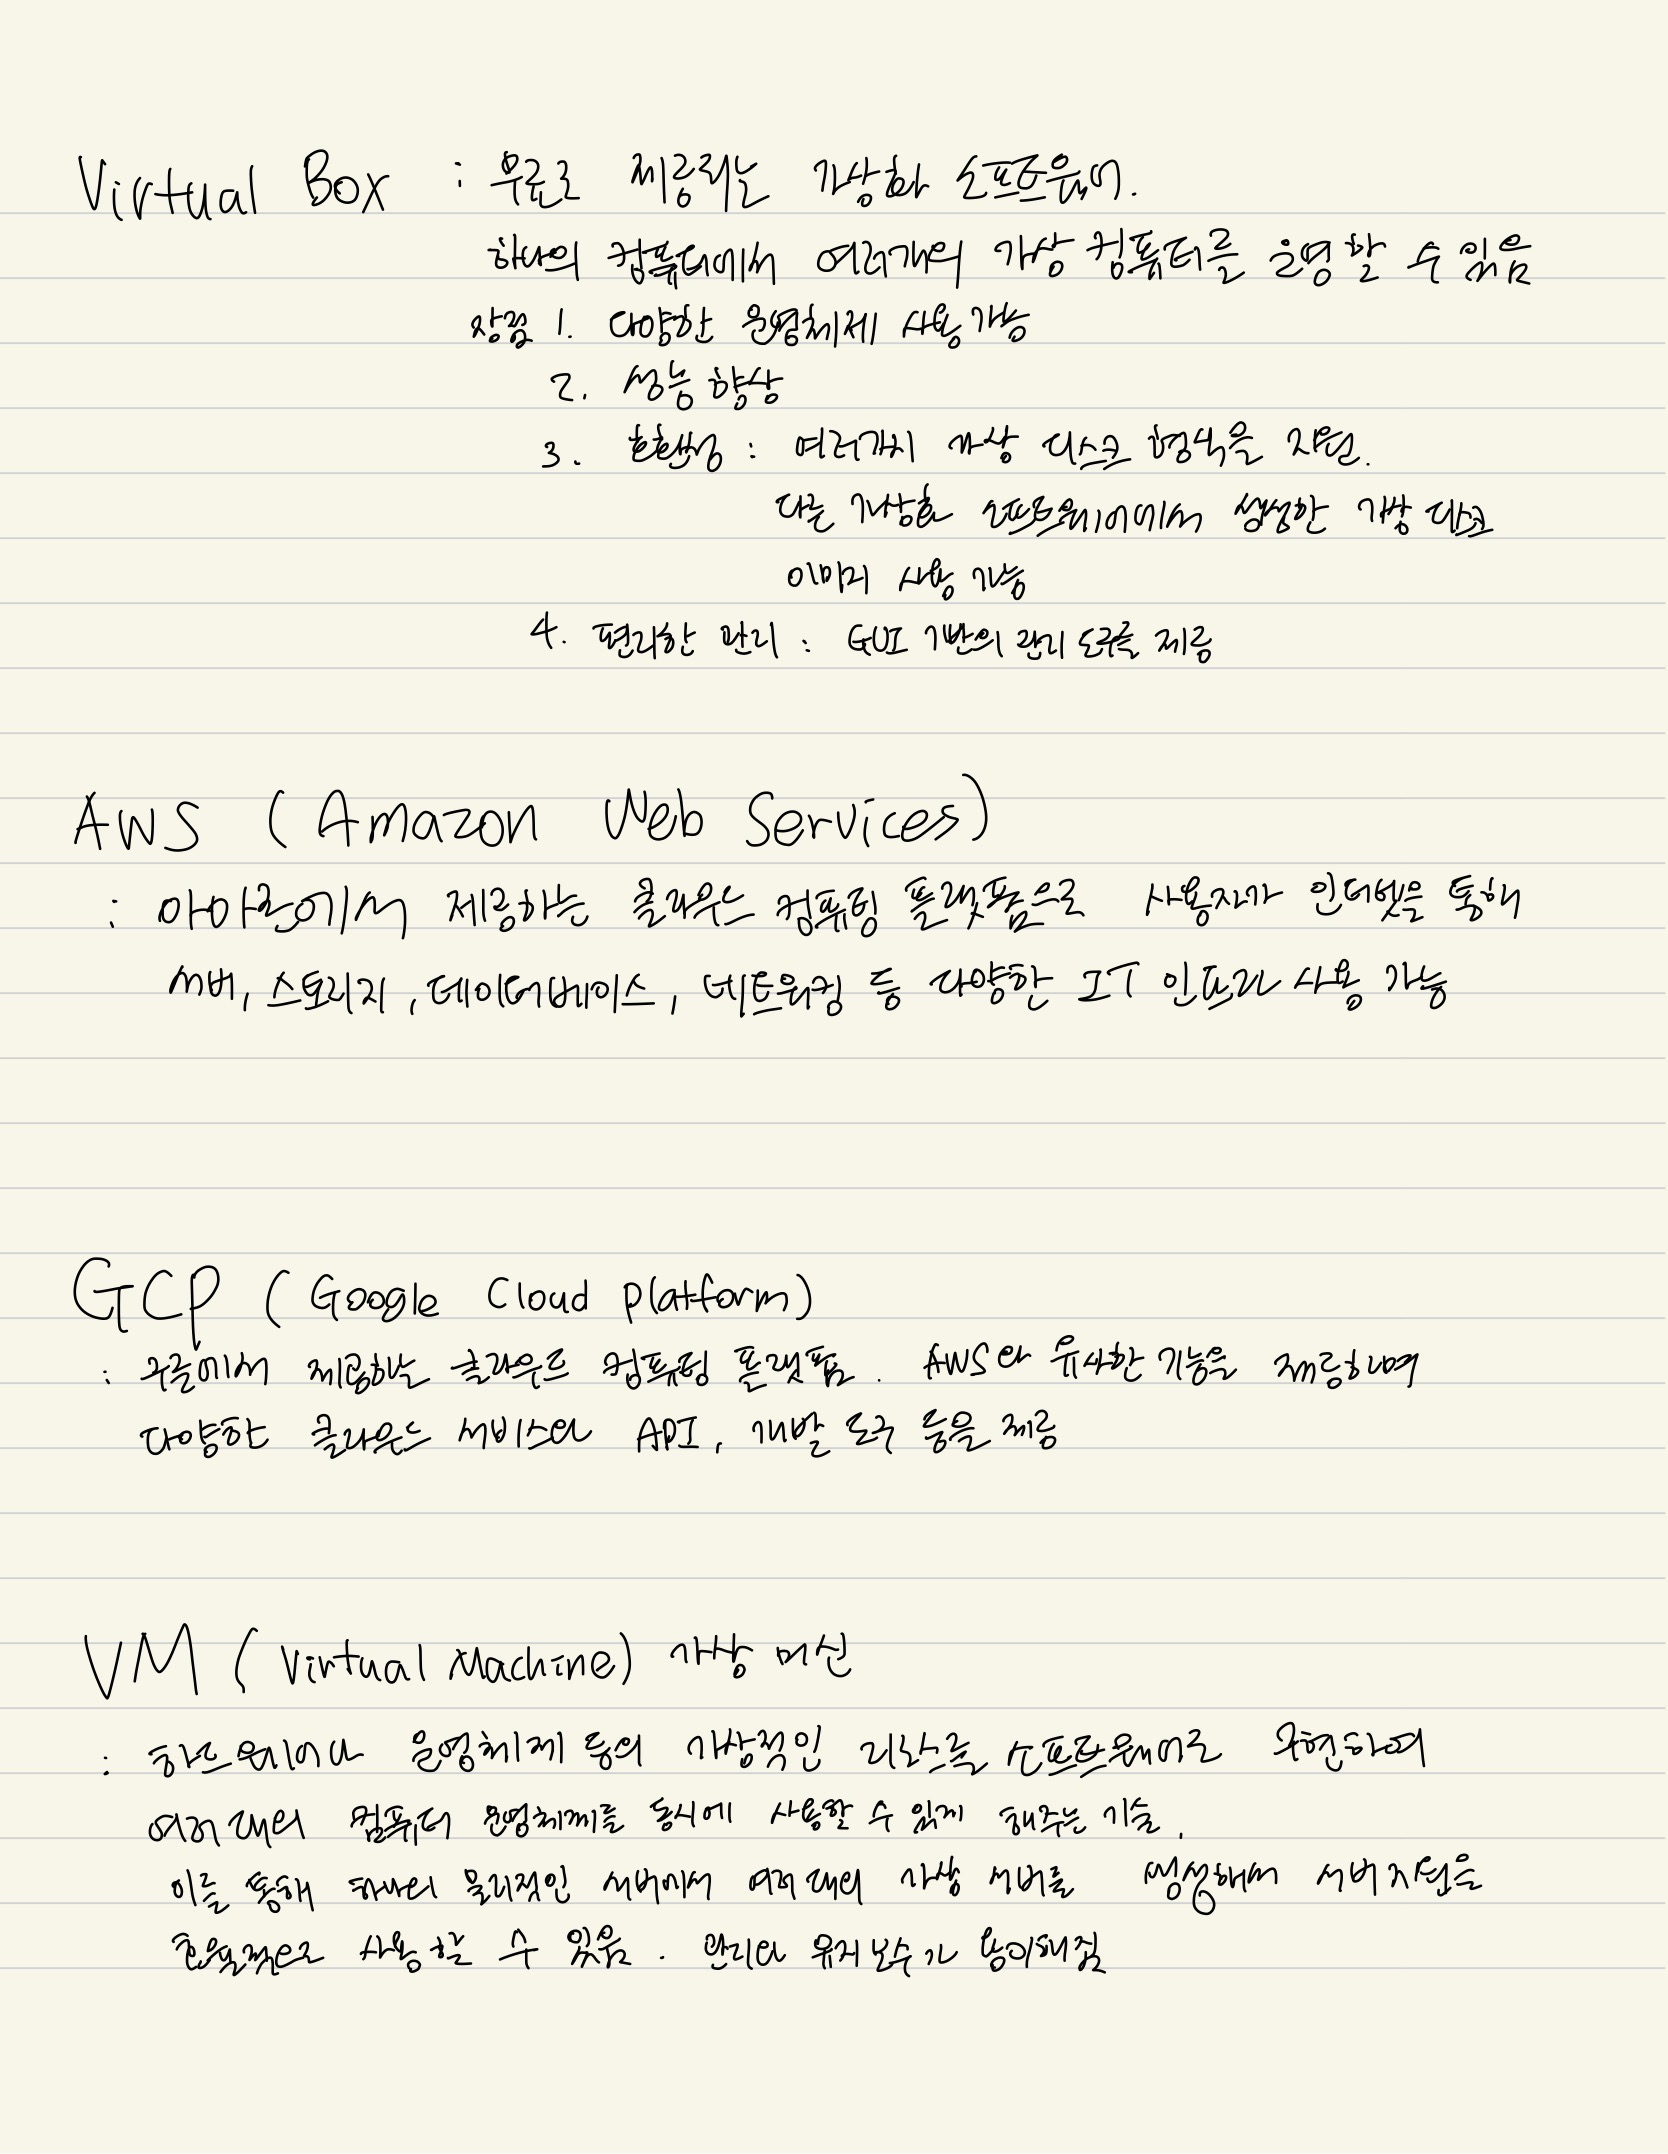 Virtual Box : 무료로 제공되는 가상화 소프트웨어.
하나의 컴퓨터에서 여러개의 가상 컴퓨터를 운영할 수 있음
장점 1. 다양한 운영체제 사용 가능
2. 성능 향상
3. 호환성 : 여러가지 가상 디스크 형식을 지원.
다른 가상화 소프트웨어에서 생성한 가상 디스크
이미지 사용 가능
4. 편리한 관리 : GUI 기반의 관리 도구를 제공
AWS (Amazon Web Services)
: 아마존에서 제공하는 클라우드 컴퓨팅 플랫폼으로 사용자가 인터넷을 통해
서버, 스토리지, 데이터베이스, 네트워킹 등 다양한 IT 인프라 사용 가능
GCP (Google Cloud Platform)
: 구글에서 제공하는 클라우드 컴퓨팅 플랫폼. AWS와 유사한 기능을 제공하며
다양한 클라우드 서비스와 API, 개발 도구 등을 제공
VM (Virtual Machine) 가상 머신
: 하드웨어나 운영체제 등의 가상적인 리소스를 소프트웨어로 구현하여
여러 대의 컴퓨터 운영체제를 동시에 사용할 수 있게 해주는 기술.
이를 통해 하나의 물리적인 서버에서 여러 대의 가상 서버를 생성해서 서버 자원을
효율적으로 사용할 수 있음. 관리와 유지보수가 용이해짐